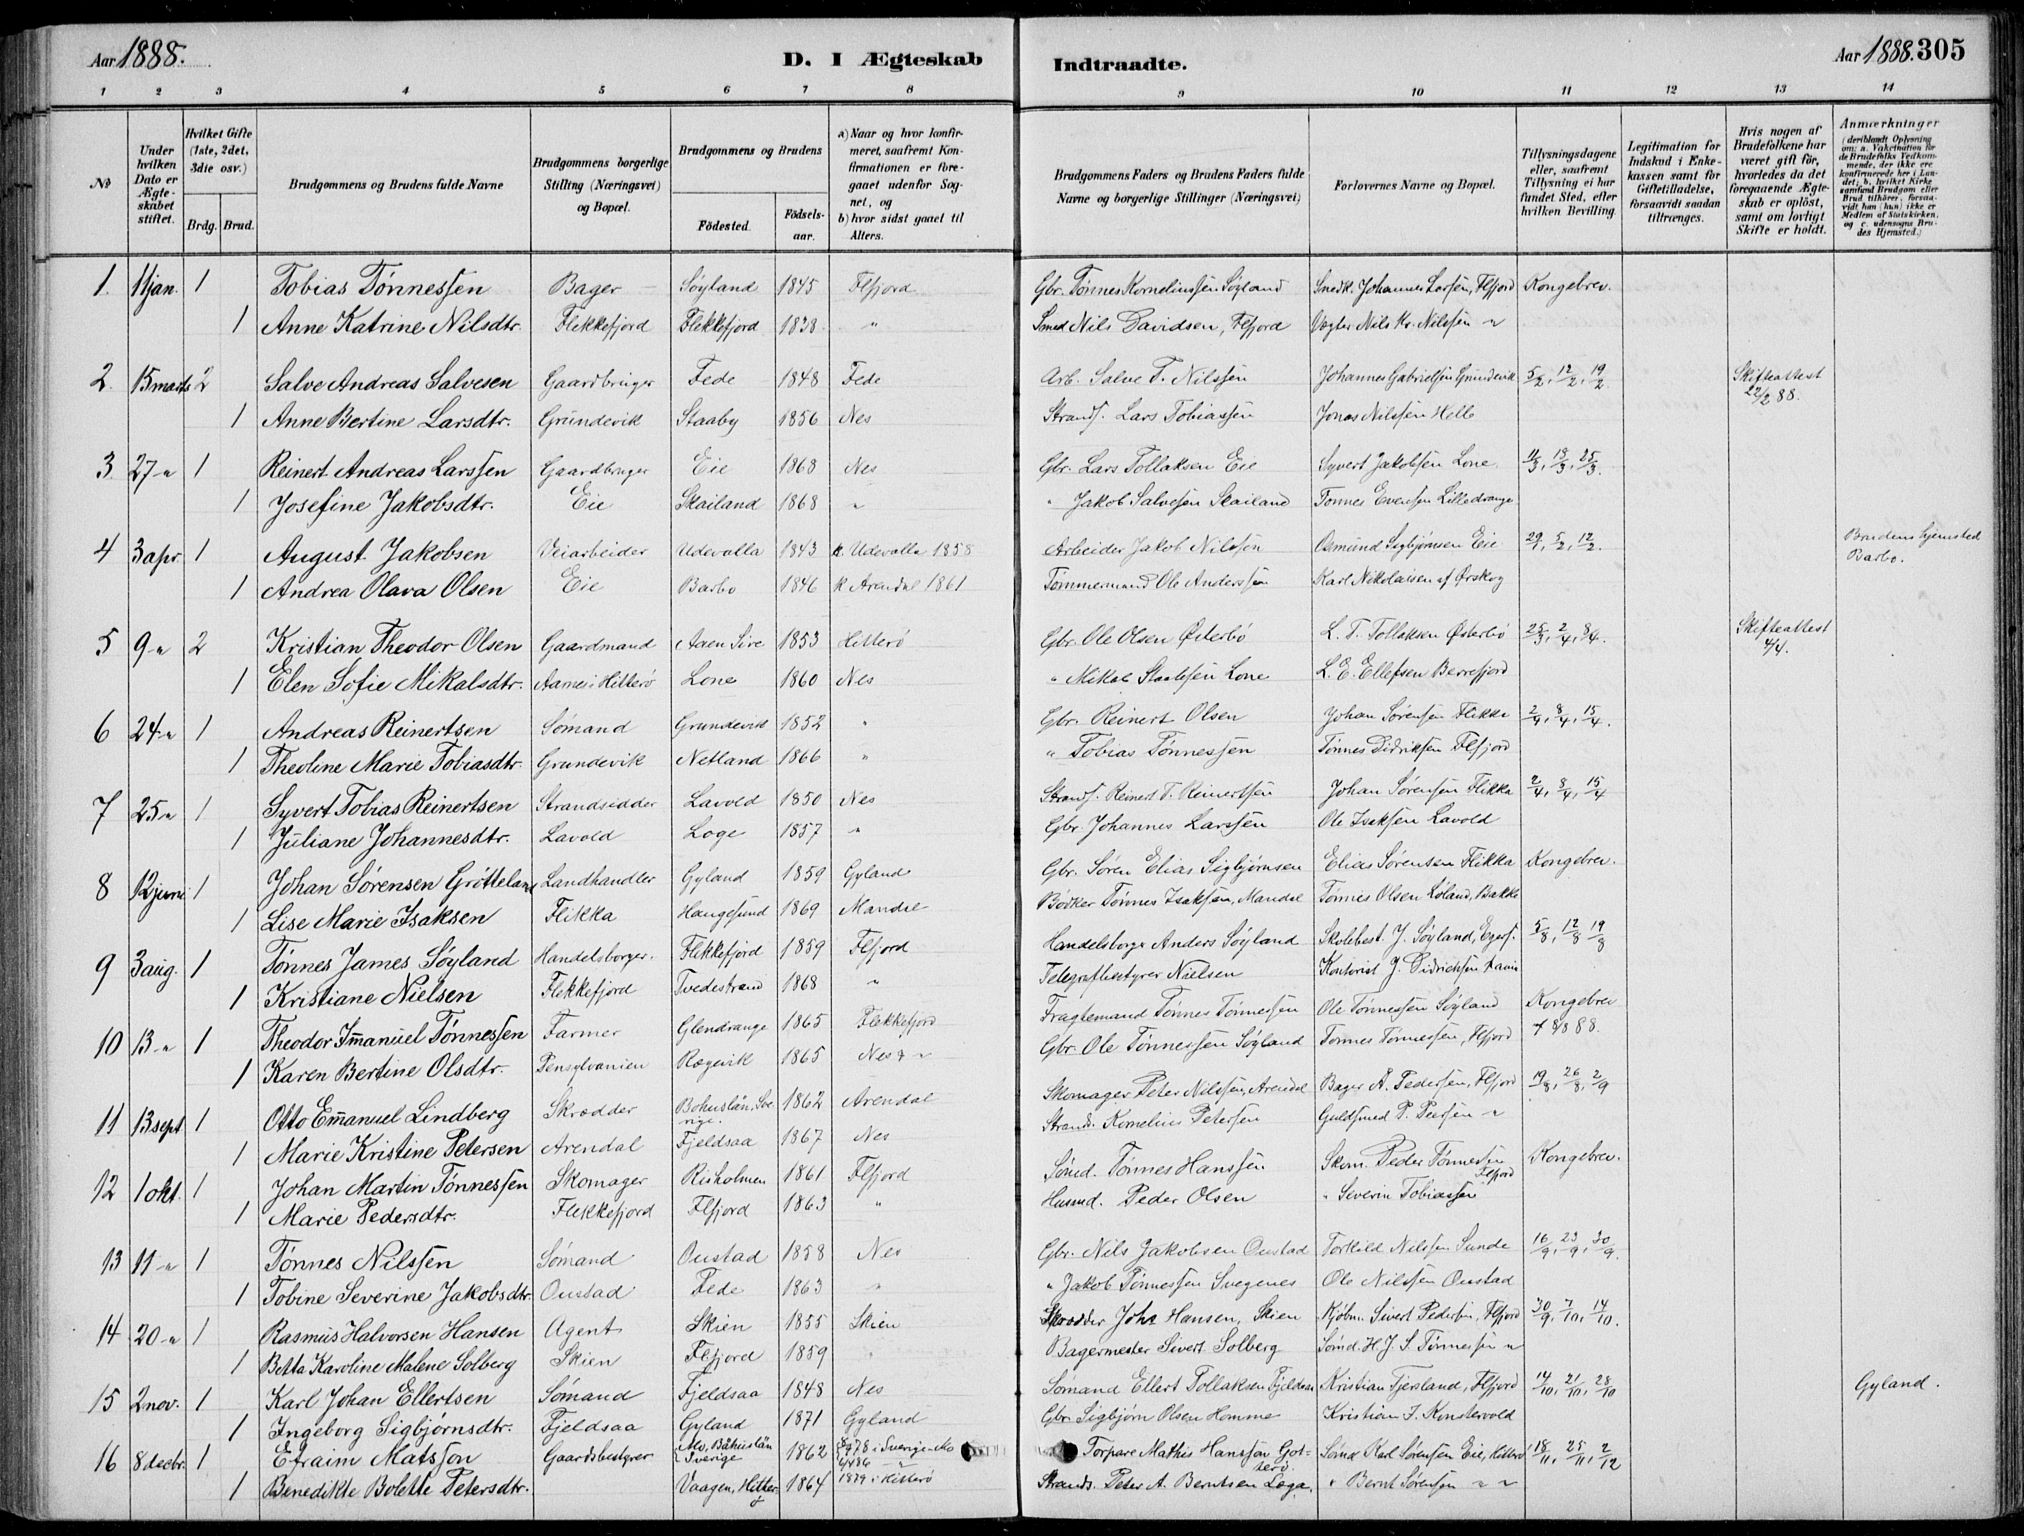 Aar 1888.
D. I Ægteskab Indtraadte.
Aar 1888. 305
1 2 3 4 5 6 7 8 9 10 11 12 13 14
No
Under hvilken Dato er Ægteskabet stiftet.
Hvilket Gifte (1ste, 2det, 3die osv.)
Brdg. Brud.
Brudgommens og Brudens fulde Navne
Brudgommens borgerlige Stilling (Næringsvei) og Bopæl.
Brudgommens og Brudens
Fødested. Fødselsaar.
a) Naar og hvor konfirmeret, saafremt Konfirmationen er foregaaet udenfor Sognet, og
b) hvor sidst gaaet til Alters.
Brudgommens Faders og Brudens Faders fulde Navne og borgerlige Stillinger (Næringsvei)
Forlovernes Navne og Bopæl.
Tillysningsdagene eller, saafremt Tillysning ei har fundet Sted, efter hvilken Bevilling.
Legitimation for Indskud i Enkekassen samt for Giftetilladelse, forsaavidt saadan tiltrænges.
Hvis nogen af Brudefolkene har været gift før, hvorledes da det foregaaende Ægteskab er opløst, samt om lovligt Skifte er holdt.
Anmærkninger
(deriblandt Oplysning om: a. Vakcination for de Brudefolks Vedkommende, der ikke ere konfirmerede her i Landet; b. hvilket Kirkesamfund Brudgom eller Brud tilhører, forsaavidt han (hun) ikke er Medlem af Statskirken, og c. udensogns Brudes Hjemsted.)
1. 11 jan. 1 Tobias Tønnessen Bager Søyland 1845 Flfjord Gbr. Tønnes Korneliussen Søyland Snedk. Johannes Larsen, Flfjord Kongebrev.
1 Anne Katrine Nilsdtr. Flekkefjord Flekkefjord 1838 " Smed Nils Davidsen, Flfjord Vægter Nils Kr. Nilssen "
2. 15 marts 2 Salve Andreas Salvesen Gaardbruger Fede 1848 Fede Arb. Salve T. Nilssen Johannes Gabrielsen Grundevik 5/2, 12/2, 19/2. Skifteattest 22/2 88.
1 Anne Bertine Larsdtr. Grundevik Staaby 1856 Nes Strands. Lars Tobiassen Jonas Nilssen Helle
3 27 " 1 Reinert Andreas Larssen Gaardbruger Eie 1868 Nes Gbr. Lars Tollaksen Eie Syvert Jakobsen Lone 11/3, 18/3, 25/3.
1 Josefine Jakobsdtr. Eie Skailand 1868 " " Jakob Salvesen Skailand Tønnes Evensen Lilledrange
4 3 apr. 1 August Jakobsen Veiarbeider Udevalla 1843 k. Udevalla 1858 Arbeider Jakob Nilsson Osmund Sigbjørnsen Eie 29/1, 5/2, 12/2. Brudens hjemsted Barbo.
1 Andrea Olava Olsen Eie Barbo 1846 k Arendal 1861 Tømmermand Ole Anderssen Karl Nikolaisen af Ørskog
5 9 " 2 Kristian Theodor Olsen Gaardmand Aaen Sire 1853 Hitterø Gbr. Ole Olsen Østerbø L. T. Tollaksen Østerbø 25/3, 2/4, 8/4. Skifteattest 4/4.
1 Elen Sofie Mikalsdtr. Aamei Hitterø Lone 1860 Nes " Mikal Staalesen Lone L. E. Ellefsen Berrefjord
6 24 " 1 Andreas Reinertsen Sømand Grundevik 1852 " Gbr. Reinert Olsen Johan Sørensen Flikka 2/4, 8/4, 15/4.
1 Theoline Marie Tobiasdtr. Grundevik Netland 1866 " " Tobias Tønnessen Tønnes Didriksen Flfjord
7 25 " 1 Syvert Tobias Reinertsen Strandsidder Lavold 1850 Nes Strands. Reinert T. Reinertsen Johan Sørensen Flikka 2/4, 8/4, 15/4
1 Juliane Johannesdtr. Lavold Loge 1857 " Gbr. Johannes Larssen Ole Isaksen Lavold
8 12 juni 1 Johan Sørensen Grøtteland Landhandler Gyland 1859 Gyland Gbr. Søren Elias Sigbjørnsen Elias Sørensen Flikka Kongebrev.
1 Lise Marie Isaksen Flikka Haugesund 1869 Mandal Bødker Tønnes Isaksen, Mandal Tønnes Olsen Løland, Bakke
9 3 aug. 1 Tønnes James Søyland Handelsborger. Flekkefjord 1859 Flfjord Handelsborger Anders Søyland Skolebest. J. Søyland, Egers. 5/8, 12/8 19/8
1 Kristiane Nielsen Flekkefjord Tvedestrand 1868 " Telegrafbestyrer Nielsen Kontorist J. Didrichsen
10 13 " 1 Theodor Imanuel Tønnessen Farmer Glendrange 1865 Flekkefjord Fragtemand Tønnes Tønnessen Ole Tønnessen Søyland Kongebrev
1 Karen Bertine Olsdtr. Pensylvanien Rægevik 1865 Nes Gbr. Ole Tønnessen Søyland Tønnes Tønnessen, Flfjord 8/8 88.
11 13 sept 1 Otto Emanuel Lindberg Skrædder Bohuslän, Sverige. 1862 Arendal Skomager Peter Nilssen, Arendal Bager A. Pedersen, Flfjord 19/8, 26/8, 2/9
1 Marie Kristine Petersen Arendal Fjeldsaa 1867 Nes Strands. Kornelius Petersen Guldsmed P. Peersen "
12 1 okt. 1 Johan Martin Tønnessen Skomager Risholmen 1861 Flfjord Sømd. Tønnes Hanssen Skom. Peder Tønnessen Flfjord Kongebrev.
1 Marie Pedersdtr. Flekkefjord Flfjord 1863 " Husmd. Peder Olsen " Severin Tobiassen
13 11 " 1 Tønnes Nilssen Sømand Oustad 1858 Nes Gbr. Nils Jakobsen Oustad Torkild Nilssen Sunde 16/9, 23/9, 30/9.
1 Tobine Severine Jakobsdtr. Oustad Fede 1863 " " Jakob Tønnessen Svegenes Ole Nilssen Oustad
14 20 " 1 Rasmus Halvorsen Hansen Agent Skien 1855 Skien Skrædder Johs Hansen, Skien Kjøbm. Sivert Pedersen, Flfjord 30/9, 7/10, 14/10.
1 Betta Karoline Malene Solberg Skien Flfjord 1859 " Bagermester Sivert Solberg Sømd. H. J. S. Tønnesen "
15 2 nov. 1 Karl Johan Ellertsen Sømand Fjeldsaa 1848 Nes Sømand Ellert Tollaksen Fjeldsaa Kristian Fjersland, Flfjord 14/10, 21/10, 28/10 Gyland.
1 Ingeborg Sigbjørnsdtr. Fjeldsaa Gyland 1871 Gyland Gbr Sigbjørn Olsen Homme Kristian J. Konstervold
16 8 decbr. 1 Efraim Matsson Gaardsbestyrer Mo, Båhuslän Sverige 1862 1878 i Sverige Mo Torpare Mathis Hansson Gotterø Sømd Karl Sørensen Eie, Hitterø 18/11, 25/11, 2/12
1 Benedikte Bolette Petersdtr. Vaagen, Hitterø 1864 1879 i Hitterø Strands. Peter A. Berntsen Loga " Bernt Sørensen " "